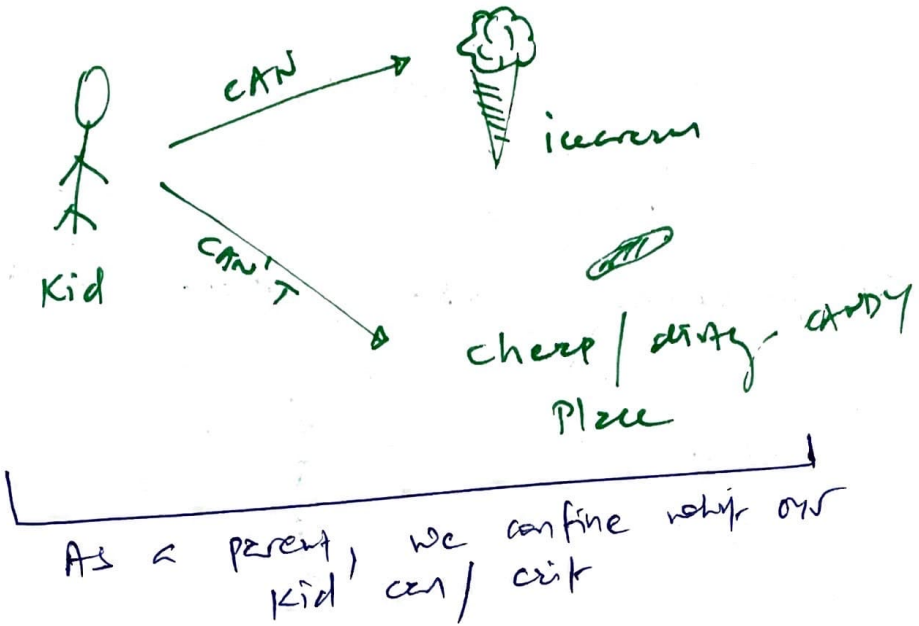 CAN
icecream
Kid
CAN'T
cheap / dirty - CANDY
Place
As a parent, we confine what our
Kid can / can't